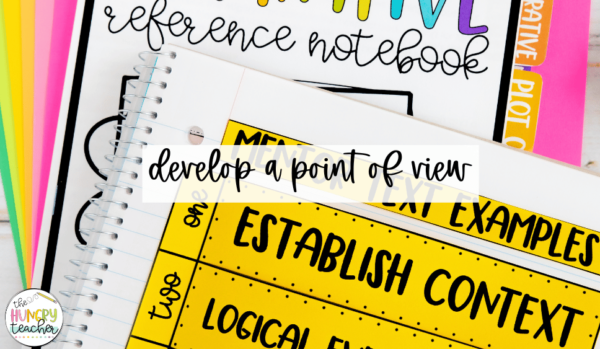 reference notebook
PLOT
develop a point of view
TEXT EXAMPLES
one
ESTABLISH CONTEXT
two
LOGICAL
the
HUNGRY
teacher